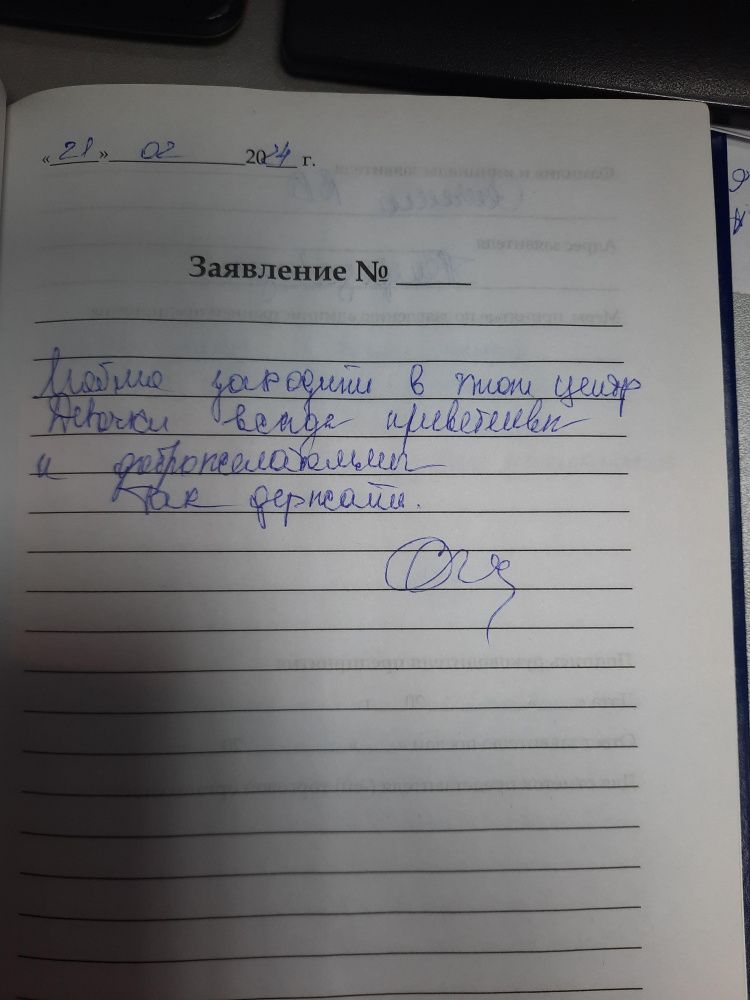 « 21 » 02 2024 г.
Заявление №
Люблю заходить в этот центр
Девочки всегда приветливы
и доброжелательны
Так держать.